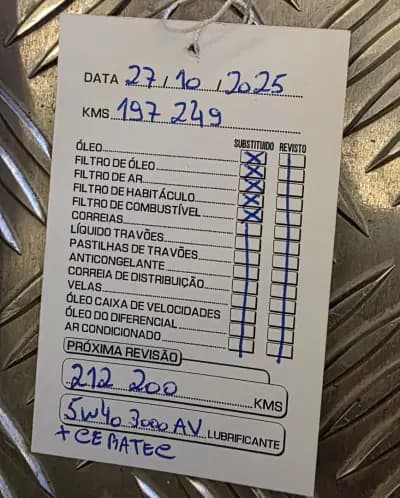 DATA 27/10/2025
KMS 197 249
SUBSTITUIDO REVISTO
ÓLEO
FILTRO DE ÓLEO
FILTRO DE AR
FILTRO DE HABITÁCULO
FILTRO DE COMBUSTÍVEL
CORREIAS
LÍQUIDO TRAVÕES
PASTILHAS DE TRAVÕES
ANTICONGELANTE
CORREIA DE DISTRIBUIÇÃO
VELAS
ÓLEO CAIXA DE VELOCIDADES
ÓLEO DO DIFERENCIAL
AR CONDICIONADO
PRÓXIMA REVISÃO
212 200 KMS
5W40 3000 AV LUBRIFICANTE
+ CERATEC